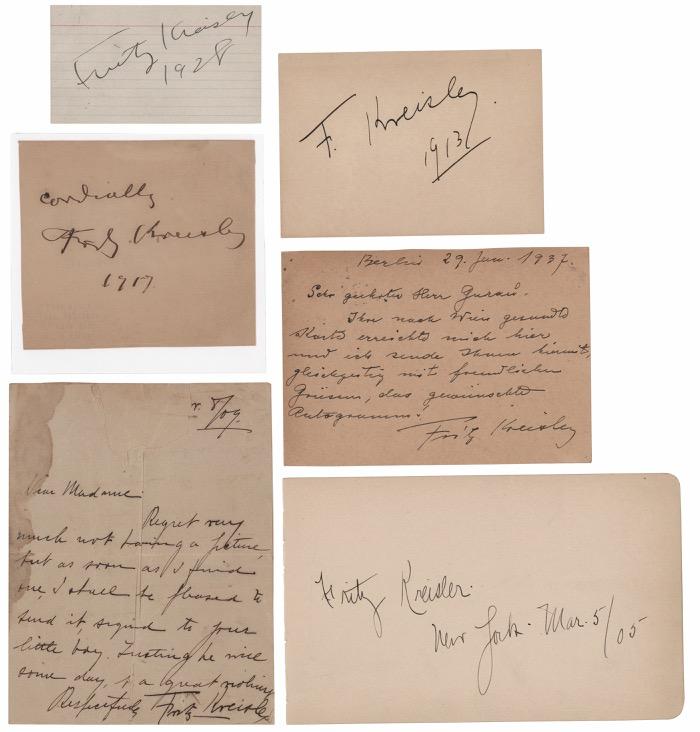 Fritz Kreisler
1928
F. Kreisler.
1913
cordially
Fritz Kreisler
1917
Berlin 29. Jan. 1937.
Sehr geehrter Herr
Ihre nach Wien gesandte
Karte erreichte mich hier
und ich sende Ihnen hiermit,
gleichzeitig mit freundlichen
Grüssen, das gewünschte
Autogramm!
Fritz Kreisler
Dear Madame
Regret very
much not having a picture,
but as soon as I find
one I shall be pleased to
send it, signed to your
little boy. Trusting he will
some day, be a great
Respectfully Fritz Kreisler
Fritz Kreisler.
New York. Mar. 5/05